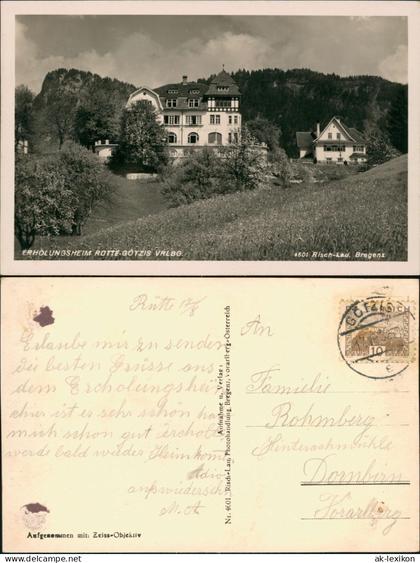 ERHOLUNGSHEIM ROTTE-GÖTZIS VRLBG.
4601 Risch-Lau, Bregenz
Rütte 17/8
Erlaube mir zu senden
die besten Grüsse aus
dem Erholungsheim
hier ist es sehr schön hab
mich schon gut erholt
werde bald wieder Heimkommen
Adio
aufwiedersehn
M. A.
Aufgenommen mit Zeiss-Objektiv
Aufnahme u. Verlag:
Nr. 4601 Risch-Lau, Photohandlung, Bregenz, Vorarlberg-Österreich
GÖTZIS
10
An
Familie
Rohmberg
Hinterachmühle
Dornbirn
Vorarlberg
© ak-lexikon
https://www.ak-lexikon.de